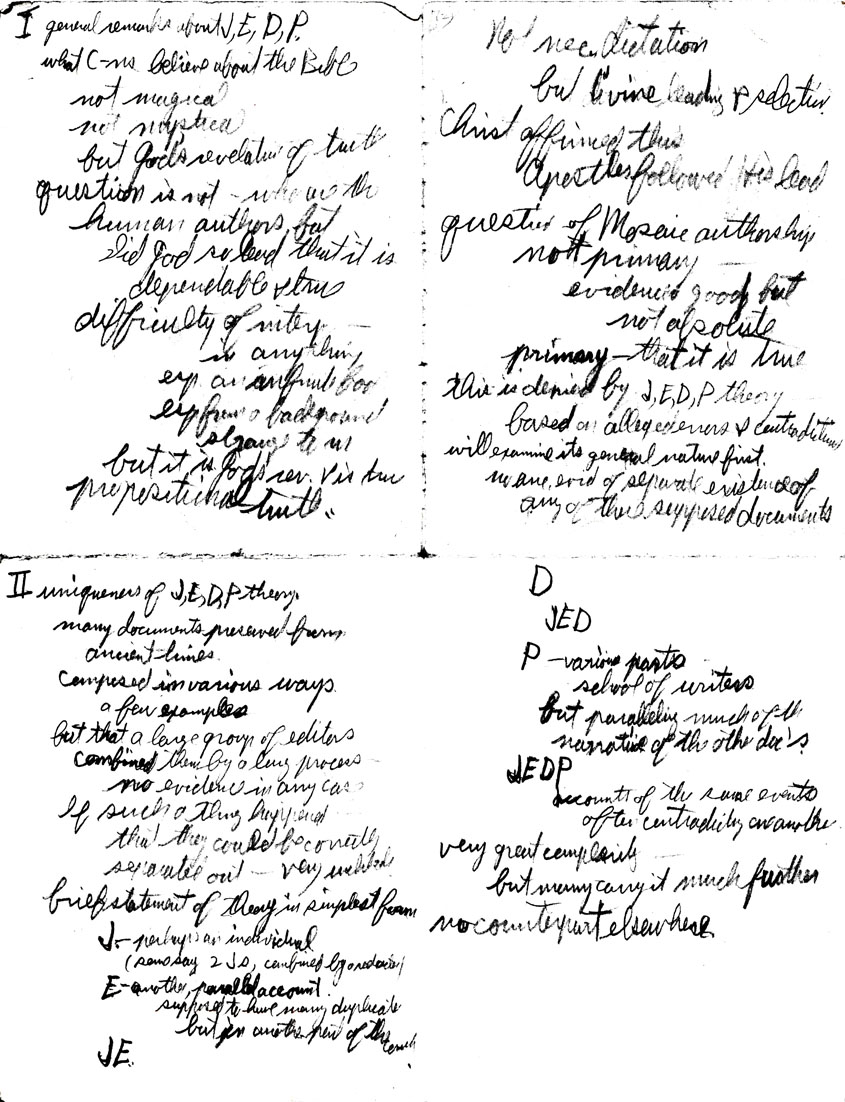 I general remarks about J, E, D, P.
what C-ns believe about the Bible
not magical
not mystical
but God's revelation of truth
question is not - who are the
human authors, but
Did God so lead that it is
dependable & true
difficulty of interp. —
in anything
esp. an book
esp from a background
strange to us
but it is God's rev. & is true
propositional truth.
Not nec. dictation
but Divine leading & selection.
Christ affirmed this
Apostles followed His lead
question of Mosaic authorship
not primary —
evidence good, but
not absolute
primary - that it is true
this is denied by J, E, D, P theory
based on alleged errors & contradictions
will examine its general nature first.
no anc. evid of separate existence of
any of these supposed documents
II uniqueness of J, E, D, P theory.
many documents preserved from
ancient times.
Composed in various ways
a few examples
but that a large group of editors
combined them by a long process -
no evidence in any case
If such a thing happened
that they could be correctly
separated out - very unlikely
brief statement of theory in simplest form
J - perhaps an individual
(some say 2 Js, combined by a redactor)
E - another, parallel account.
supposed to have many duplicate
but in another part of the
JE.
D
JED
P - various parts
school of writers
but paralleling much of the
narrative of the other doc's.
JEDP
accounts of the same events
often contradicting one another
very great complexity —
but many carry it much further
no counterpart elsewhere